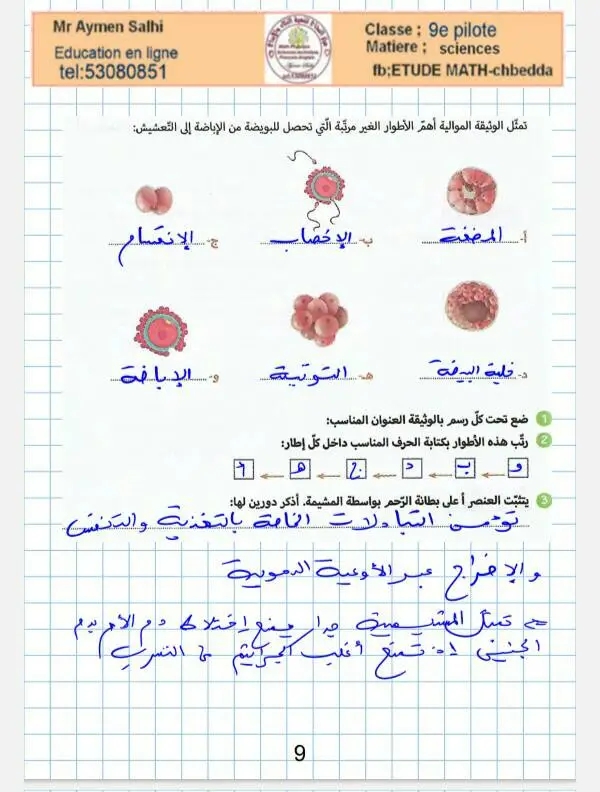 Mr Aymen Salhi
Education en ligne
tel:53080851
Classe ; 9e pilote
Matiere ; sciences
fb;ETUDE MATH-chbedda
تمثّل الوثيقة الموالية أهمّ الأطوار الغير مرتّبة الّتي تحصل للبويضة من الإباضة إلى التّعشيش:
أ- المضغة
ب- الإخصاب
ج- الإنقسام
د- خلية البيضة
هـ- التوتية
و- الإباضة
1 ضع تحت كلّ رسم بالوثيقة العنوان المناسب:
2 رتّب هذه الأطوار بكتابة الحرف المناسب داخل كلّ إطار:
و ← ب ← د ← ج ← هـ ← أ
3 يتثبّت العنصر أ على بطانة الرّحم بواسطة المشيمة. أذكر دورين لها:
تؤمن التبادلات الخاصة بالتغذية والتنفس
والإخراج عبر الأوعية الدموية
تمثل المشيمة جدار يمنع إختلاط دم الأم بدم
الجنين تمنع أغلب الجراثيم التسرب
9